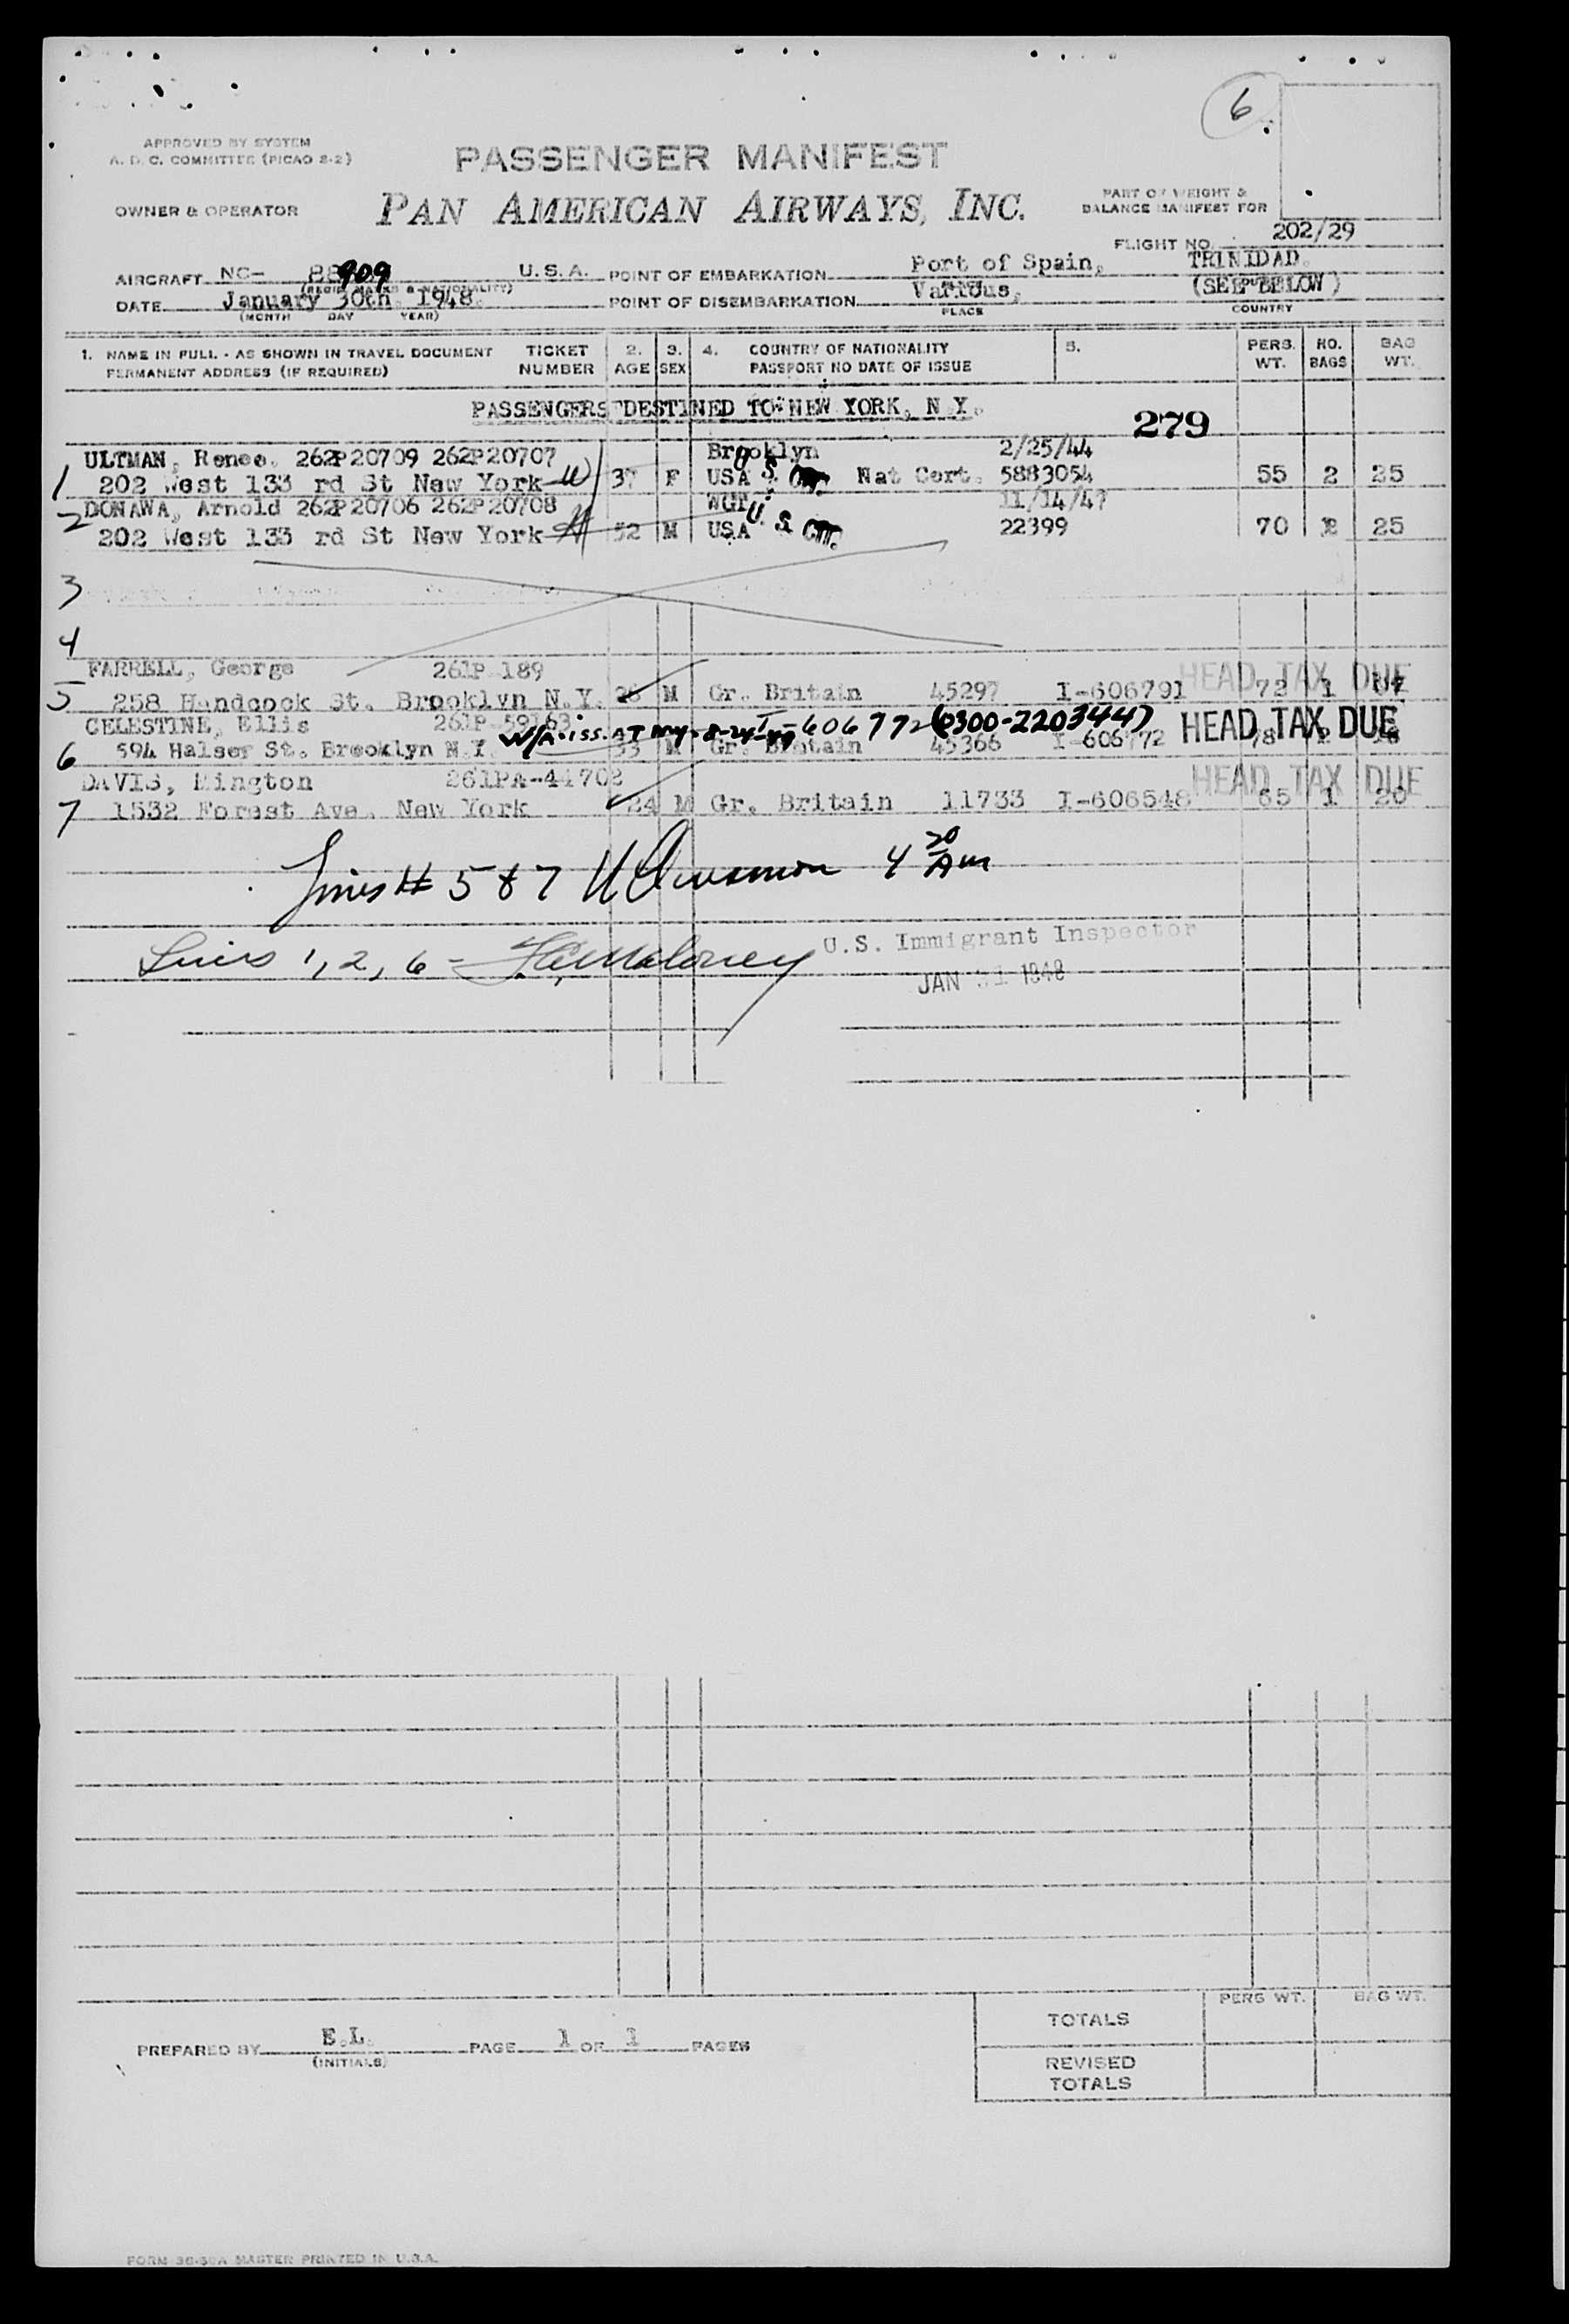 6
APPROVED BY SYSTEM
A. D. C. COMMITTEE (PICAO 2-2)
PASSENGER MANIFEST
OWNER & OPERATOR
PAN AMERICAN AIRWAYS, INC.
PART OF WEIGHT &
BALANCE MANIFEST FOR
FLIGHT NO. 202/29
AIRCRAFT NC- 88909 U.S.A. POINT OF EMBARKATION Port of Spain, TRINIDAD.
(REGIS. MARKS & NATIONALITY)
DATE January 30th, 1948. POINT OF DISEMBARKATION Various, (SEE BELOW)
(MONTH DAY YEAR) PLACE COUNTRY
1. NAME IN FULL - AS SHOWN IN TRAVEL DOCUMENT TICKET 2. 3. 4. COUNTRY OF NATIONALITY 5. PERS. NO. BAG
PERMANENT ADDRESS (IF REQUIRED) NUMBER AGE SEX PASSPORT NO DATE OF ISSUE WT. BAGS WT.
PASSENGERS DESTINED TO NEW YORK, N.Y. 279
ULTMAN, Renee. 262P20709 262P20707 Brooklyn 2/25/44
1 202 West 133 rd St New York 37 F USA U.S. Nat Cert. 5883054 55 2 25
DONAWA, Arnold 262P20706 262P20708 11/14/47
2 202 West 133 rd St New York 52 M USA U.S. 22399 70 25
3
4
FARRELL, George 261P-189 HEAD TAX DUE
5 258 Handcock St. Brooklyn N.Y. M Gr. Britain 45297 I-606791 72 1
CELESTINE, Ellis 261P-59163 I-606772 (0300-220344) HEAD TAX DUE
6 594 Halser St. Brooklyn N.Y. 33 M Gr. Britain 45366 I-606772 78
DAVIS, 261PA-44702 HEAD TAX DUE
7 1532 Forest Ave. New York 24 M Gr. Britain 11733 I-606548 65 1 20
Lines # 5 & 7 4 20 AM
Lines 1, 2, 6 - Maloney U.S. Immigrant Inspector
JAN 31 1948
TOTALS PERS WT. BAG WT.
PREPARED BY E.L. PAGE 1 OF 1 PAGES
(INITIALS)
REVISED
TOTALS
MASTER PRINTED IN U.S.A.